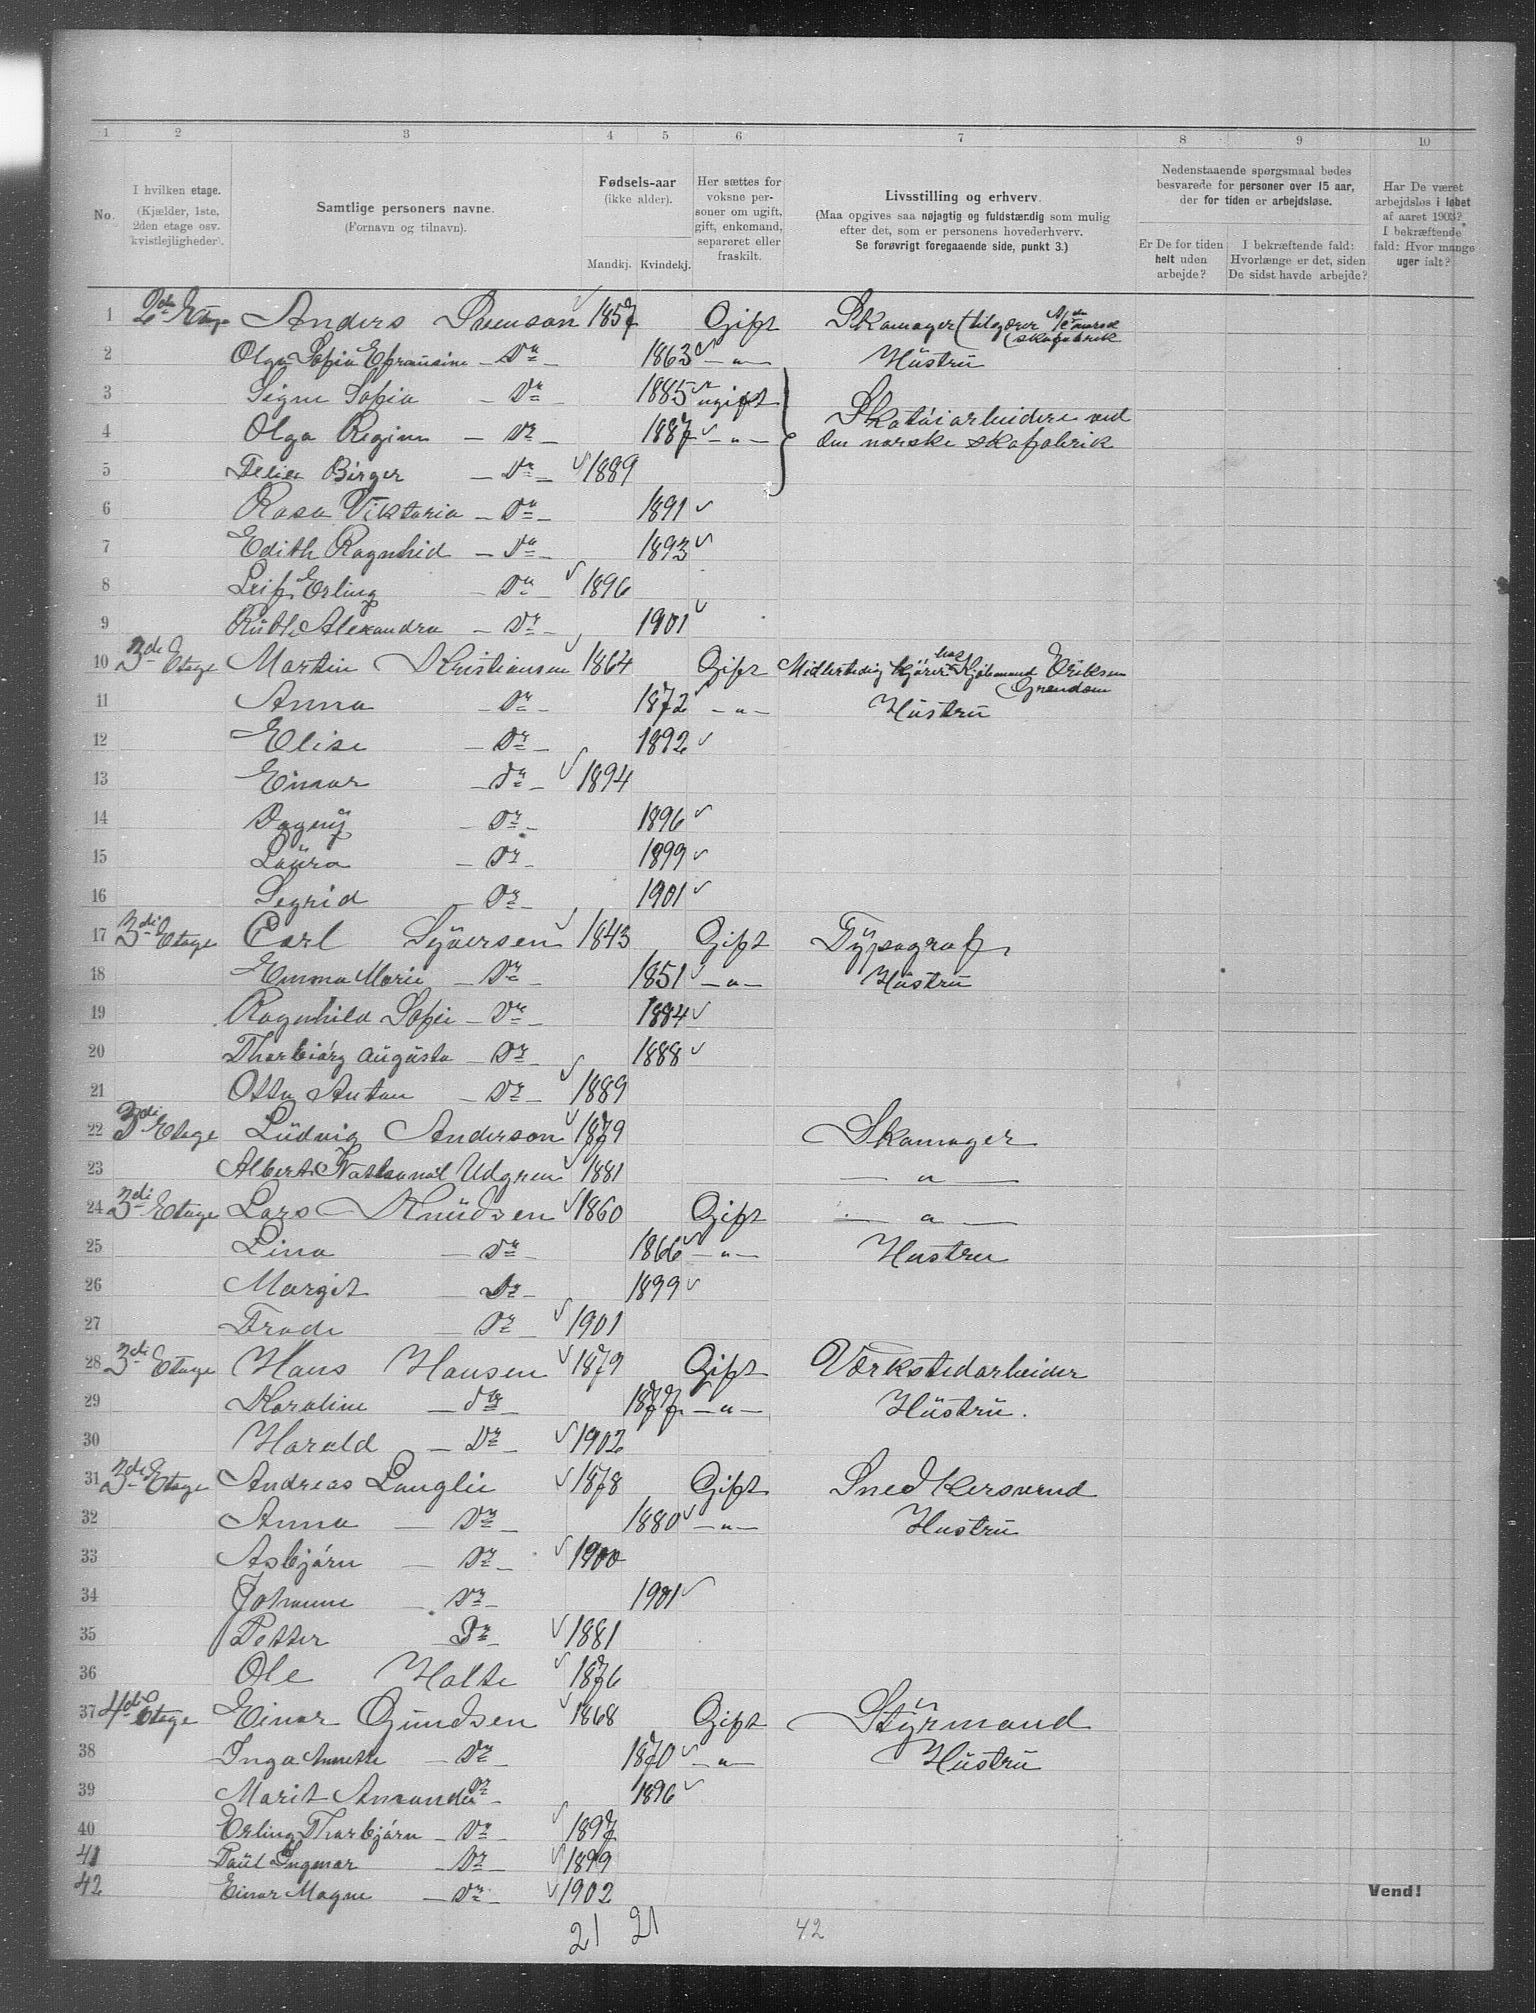 1 2 3 4 5 6 7 8 9 10
No.
I hvilken etage.
(Kjælder, 1ste,
2den etage osv.
kvistlejligheder).
Samtlige personers navne.
(Fornavn og tilnavn).
Fødsels-aar
(ikke alder).
Mandkj. Kvindekj.
Her sættes for
voksne per-
soner om ugift,
gift, enkemand,
separeret eller
fraskilt.
Livsstilling og erhverv.
(Maa opgives saa nøjagtig og fuldstændig som mulig
efter det, som er personens hovederhverv.
Se forøvrigt foregaaende side, punkt 3.)
Nedenstaaende spørgsmaal bedes
besvarede for personer over 15 aar,
der for tiden er arbejdsløse.
Er De for tiden
helt uden
arbejde?
I bekræftende fald:
Hvorlænge er det, siden
De sidst havde arbejde?
Har De været
arbejdsløs i løbet
af aaret 1903?
I bekræftende
fald: Hvor mange
uger ialt?
1 2den Etage Anders 1857 Gift Skomager (tilgjører norsk skofabrik
2 Olga Sofia Efrausine - Do - 1863 - " - Hüstrü
3 Signe Sofia - Do - 1885 ugift
4 Olga Regine - Do - 1887 - " - Skotöiarbeidere ved den norske skofabrik
5 Felix Birger - Do - 1889
6 Rosa Viktoria - Do - 1891
7 Edith Ragnhid - Do - 1893
8 Leif Erling - Do - 1896
9 Rüth Alexandra - Do - 1901
10 3de Etage Martin Kristiansen 1864 Gift Midlertidig kjörer hos Kjöbmand Eriksen Grændsen
11 Anna - Do - 1872 - " - Hüstrü
12 Elise - Do - 1892
13 Einar - Do - 1894
14 Dagnÿ - Do - 1896
15 Laüra - Do - 1899
16 Segrid - Do - 1901
17 3di Etage Carl Syversen 1843 Gift Typograf
18 Emma Marie - Do - 1851 - " - Hüstrü
19 Ragnhild Sofie - Do - 1884
20 Thorbiörg Augüsta - Do - 1888
21 Otto Anton - Do - 1889
22 3di Etage Lüdvig Anderson 1879 Skomager
23 Albert Nathanael Udgren 1881 - " -
24 3di Etage Lars Knüdsen 1860 Gift - " -
25 Lina - Do - 1866 - " - Hustru
26 Margit - Do - 1899
27 Frode - Do - 1901
28 3di Etage Hans Hansen 1879 Gift Værkstedarbeider
29 Karoline - Do - 1877 - " - Hüstrü.
30 Harald - Do - 1902
31 3di Etage Andreas Langlie 1878 Gift Snedkersvend
32 Anna - Do - 1880 - " - Hustrü
33 Asbjörn - Do - 1900
34 Johanne - Do - 1901
35 Petter Do 1881
36 Ole Holte 1876
37 4de Etage Einar Gundsen 1868 Gift Styrmand
38 Inga Annette - Do - 1870 - " - Hüstrü
39 Marit Amanda Do - 1896
40 Erling Thorbjörn - Do - 1897
41 Paül Ingmar - Do - 1899
42 Einar Magne - Do - 1902
Vend!
21 21 42